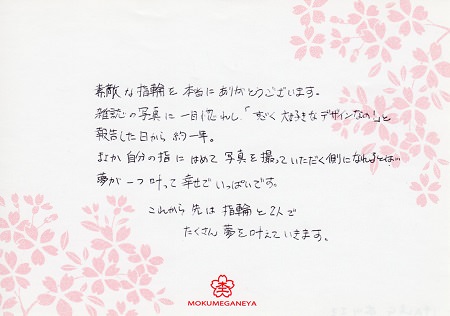 素敵な指輪を本当にありがとうございます。
雑誌の写真に一目惚れし、「すごく大好きなデザインなの!」と
報告した日から約一年。
まさか自分の指にはめて写真を撮っていただく側になれるとは…
夢が一つ叶って幸せでいっぱいです。
これから先は指輪と2人で
たくさん夢を叶えていきます。
MOKUMEGANEYA